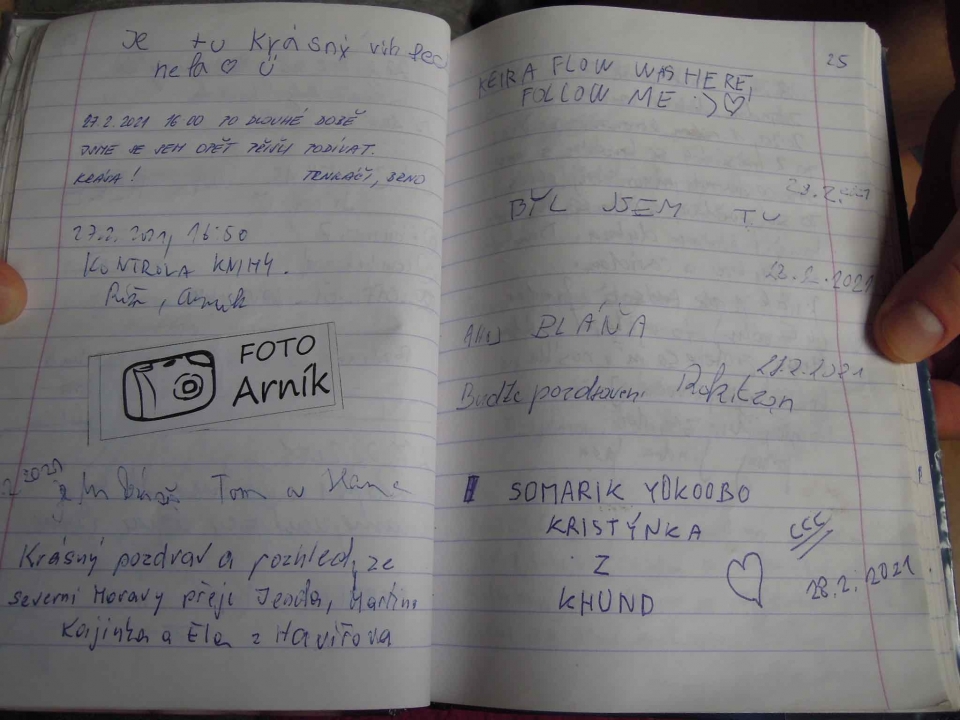 Je tu krásný výhled
nebo ♡ Ü
27.2.2021 16 00 PO DLOUHÉ DOBĚ
JSME SE SEM OPĚT PŘIŠLI PODÍVAT.
KRÁSA! BRNO
27.2.2021, 16:50
KONTROLA KNIHY.
Arník
FOTO
Arník
2021
Tom a Hana
Krásný pozdrav a rozhled, ze
severní Moravy přejí Jenda, Martina
Kajinka a Ela z Havířova
25
KEIRA FLOW WAS HERE,
FOLLOW ME :) ♡
BYL JSEM TU
2021
BLÁŇA
2021
Buďte pozdraveni
SOMARIK YOKOOBO
KRISTÝNKA
Z
KHUND
♡ 28.2. 2021